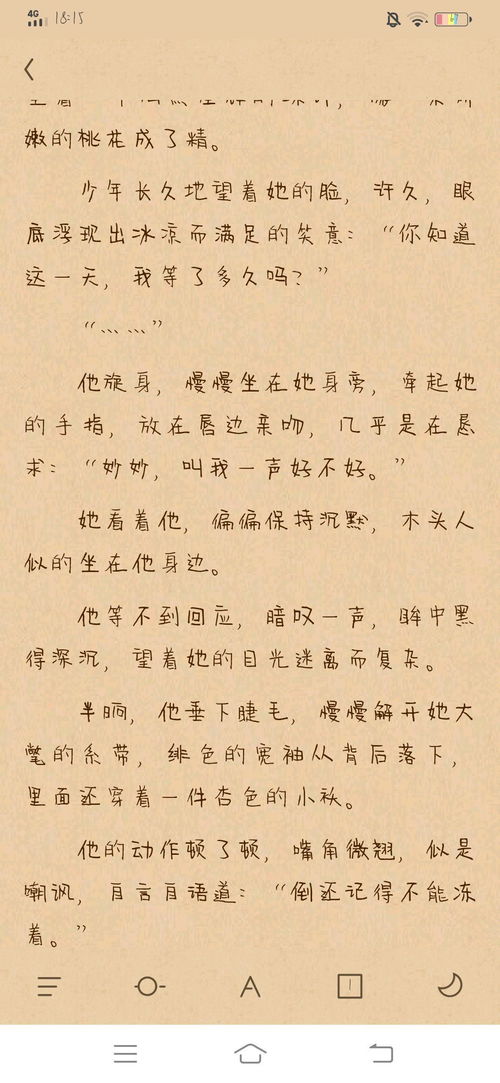 4G
18:15
嫩的桃花成了精。
少年长久地望着她的脸，许久，眼
底浮现出冰凉而满足的笑意：“你知道
这一天，我等了多久吗？”
“……”
他旋身，慢慢坐在她身旁，牵起她
的手指，放在唇边亲吻，几乎是在恳
求：“妙妙，叫我一声好不好。”
她看着他，偏偏保持沉默，木头人
似的坐在他身边。
他等不到回应，暗叹一声，眸中黑
得深沉，望着她的目光迷离而复杂。
半晌，他垂下睫毛，慢慢解开她大
氅的系带，绯色的宽袖从背后落下，
里面还穿着一件杏色的小袄。
他的动作顿了顿，嘴角微翘，似是
嘲讽，自言自语道：“倒还记得不能冻
着。”
A
1